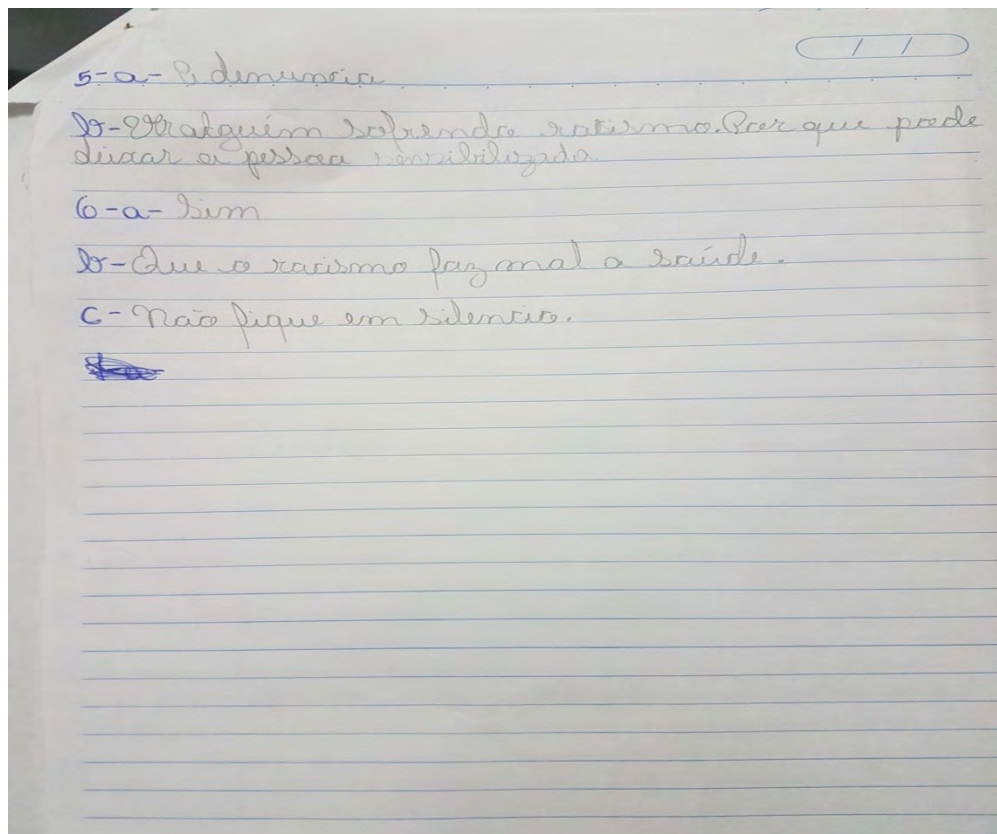 5-a- A denuncia
b- Ver alguém sofrendo racismo. Por que pode
deixar a pessoa sensibilizada.
6-a- Sim
b- Que o racismo faz mal a saúde.
c- Não fique em silencio.